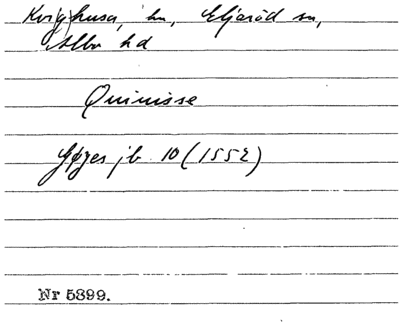 Kvighusa, hn, Eljaröd sn,
Albo hd
Quiuisse
Gøyes jb 10 (1552)
Nr 5899.